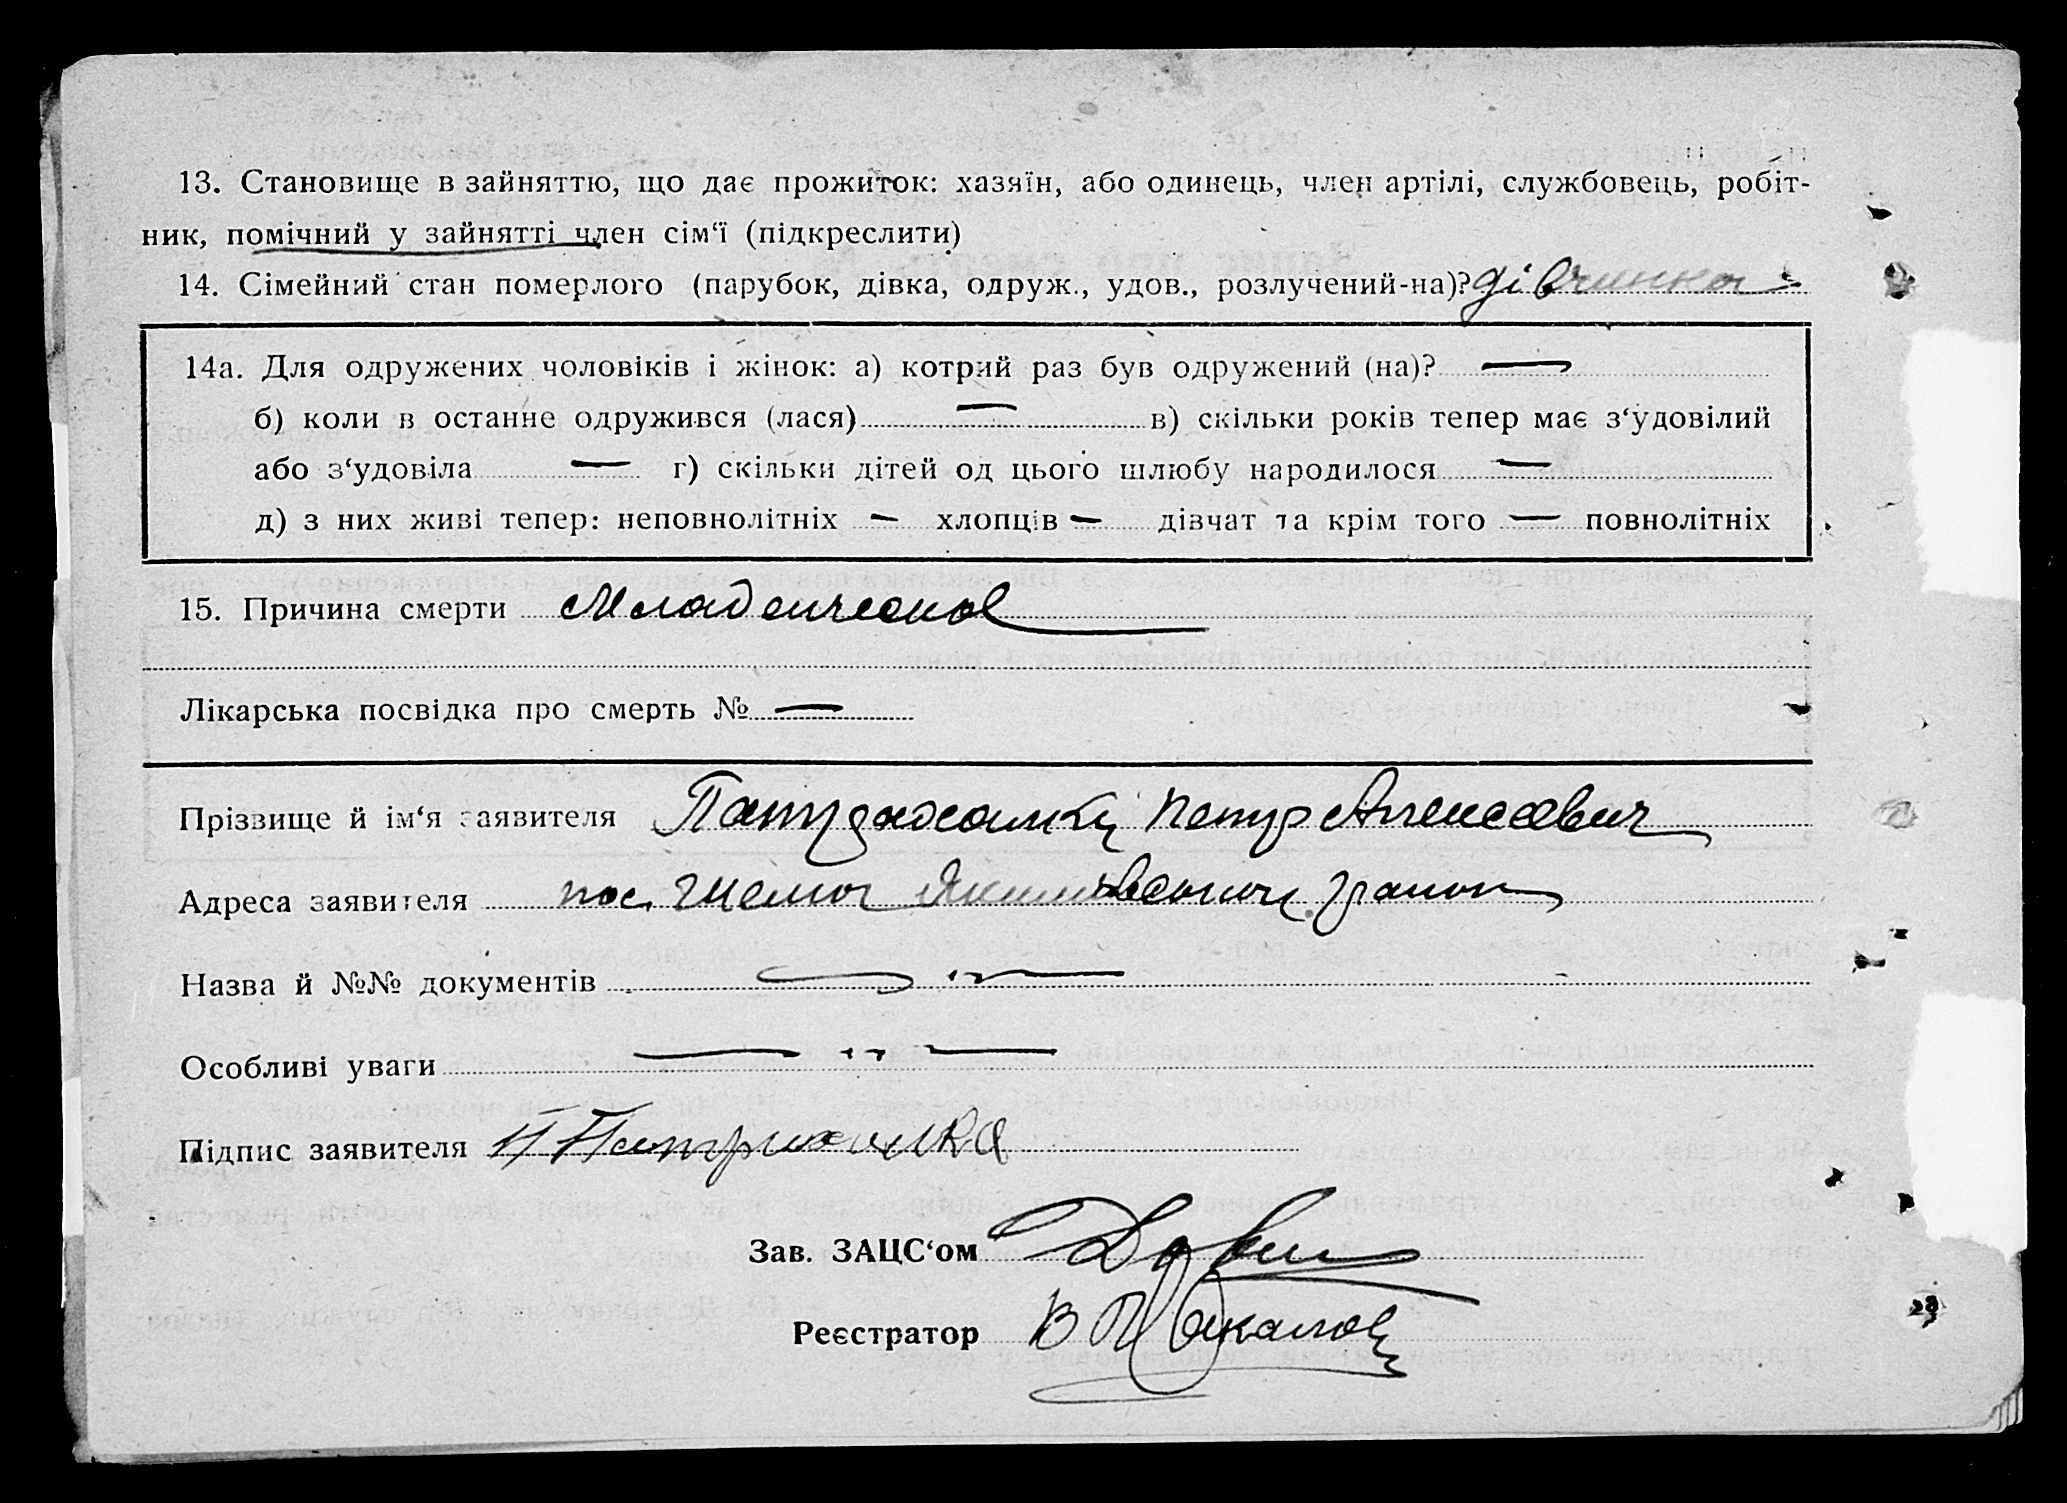 13. Становище в зайняттю, що дає прожиток: хазяїн, або одинець, член артілі, службовець, робіт-
ник, помічний у зайнятті член сім'ї (підкреслити)
14. Сімейний стан померлого (парубок, дівка, одруж., удов., розлучений-на)? дівчинка
14а. Для одружених чоловіків і жінок: а) котрий раз був одружений (на)? —
б) коли в останнє одружився (лася) — в) скільки років тепер має з'удовілий
або з'удовіла — г) скільки дітей од цього шлюбу народилося —
д) з них живі тепер: неповнолітніх — хлопців — дівчат та крім того — повнолітніх
15. Причина смерти Младенческая
Лікарська посвідка про смерть № —
Прізвище й ім'я заявителя Петр
Адреса заявителя пос.
Назва й №№ документів — " —
Особливі уваги — " —
Підпис заявителя
Зав. ЗАЦС'ом
Реєстратор